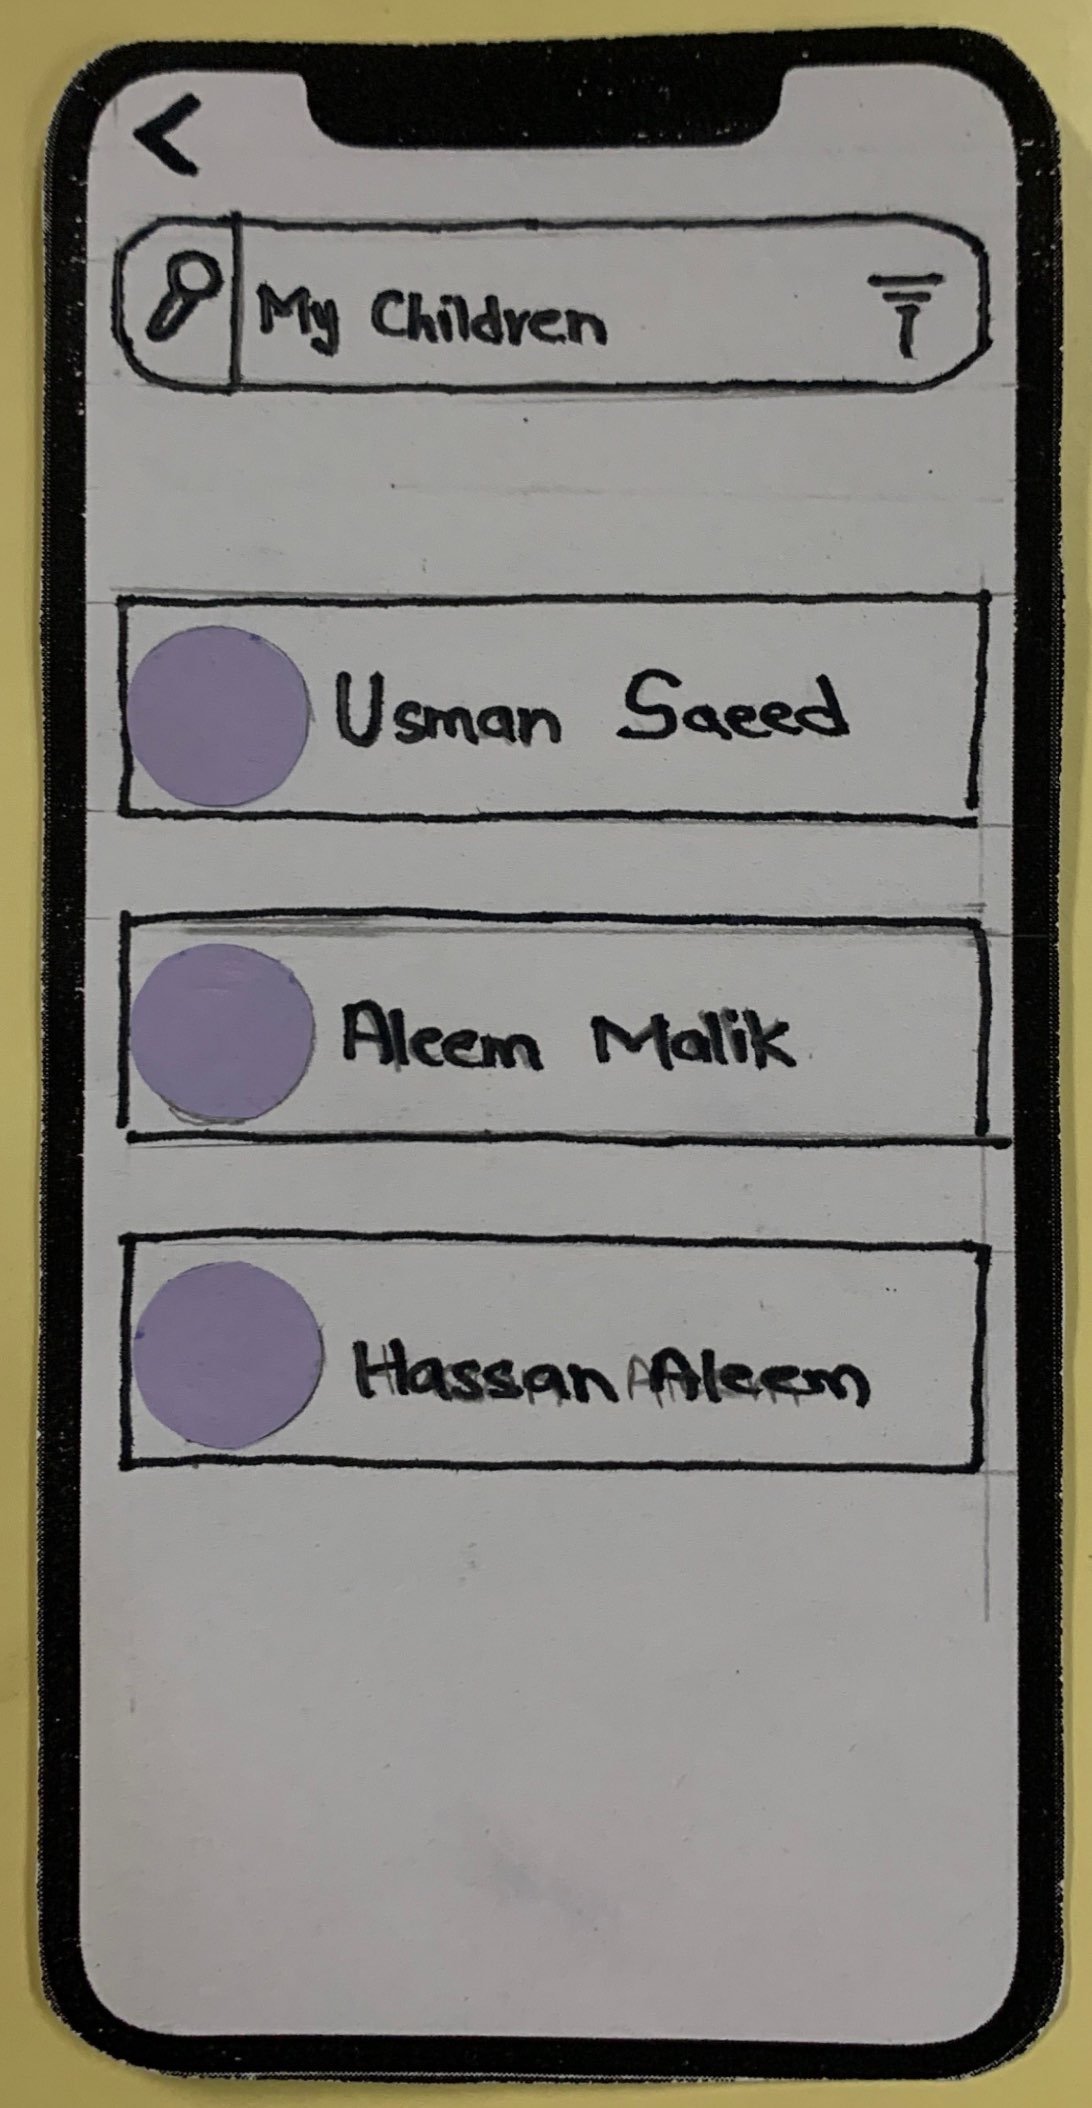 My Children
Usman Saeed
Aleem Malik
Hassan Aleem